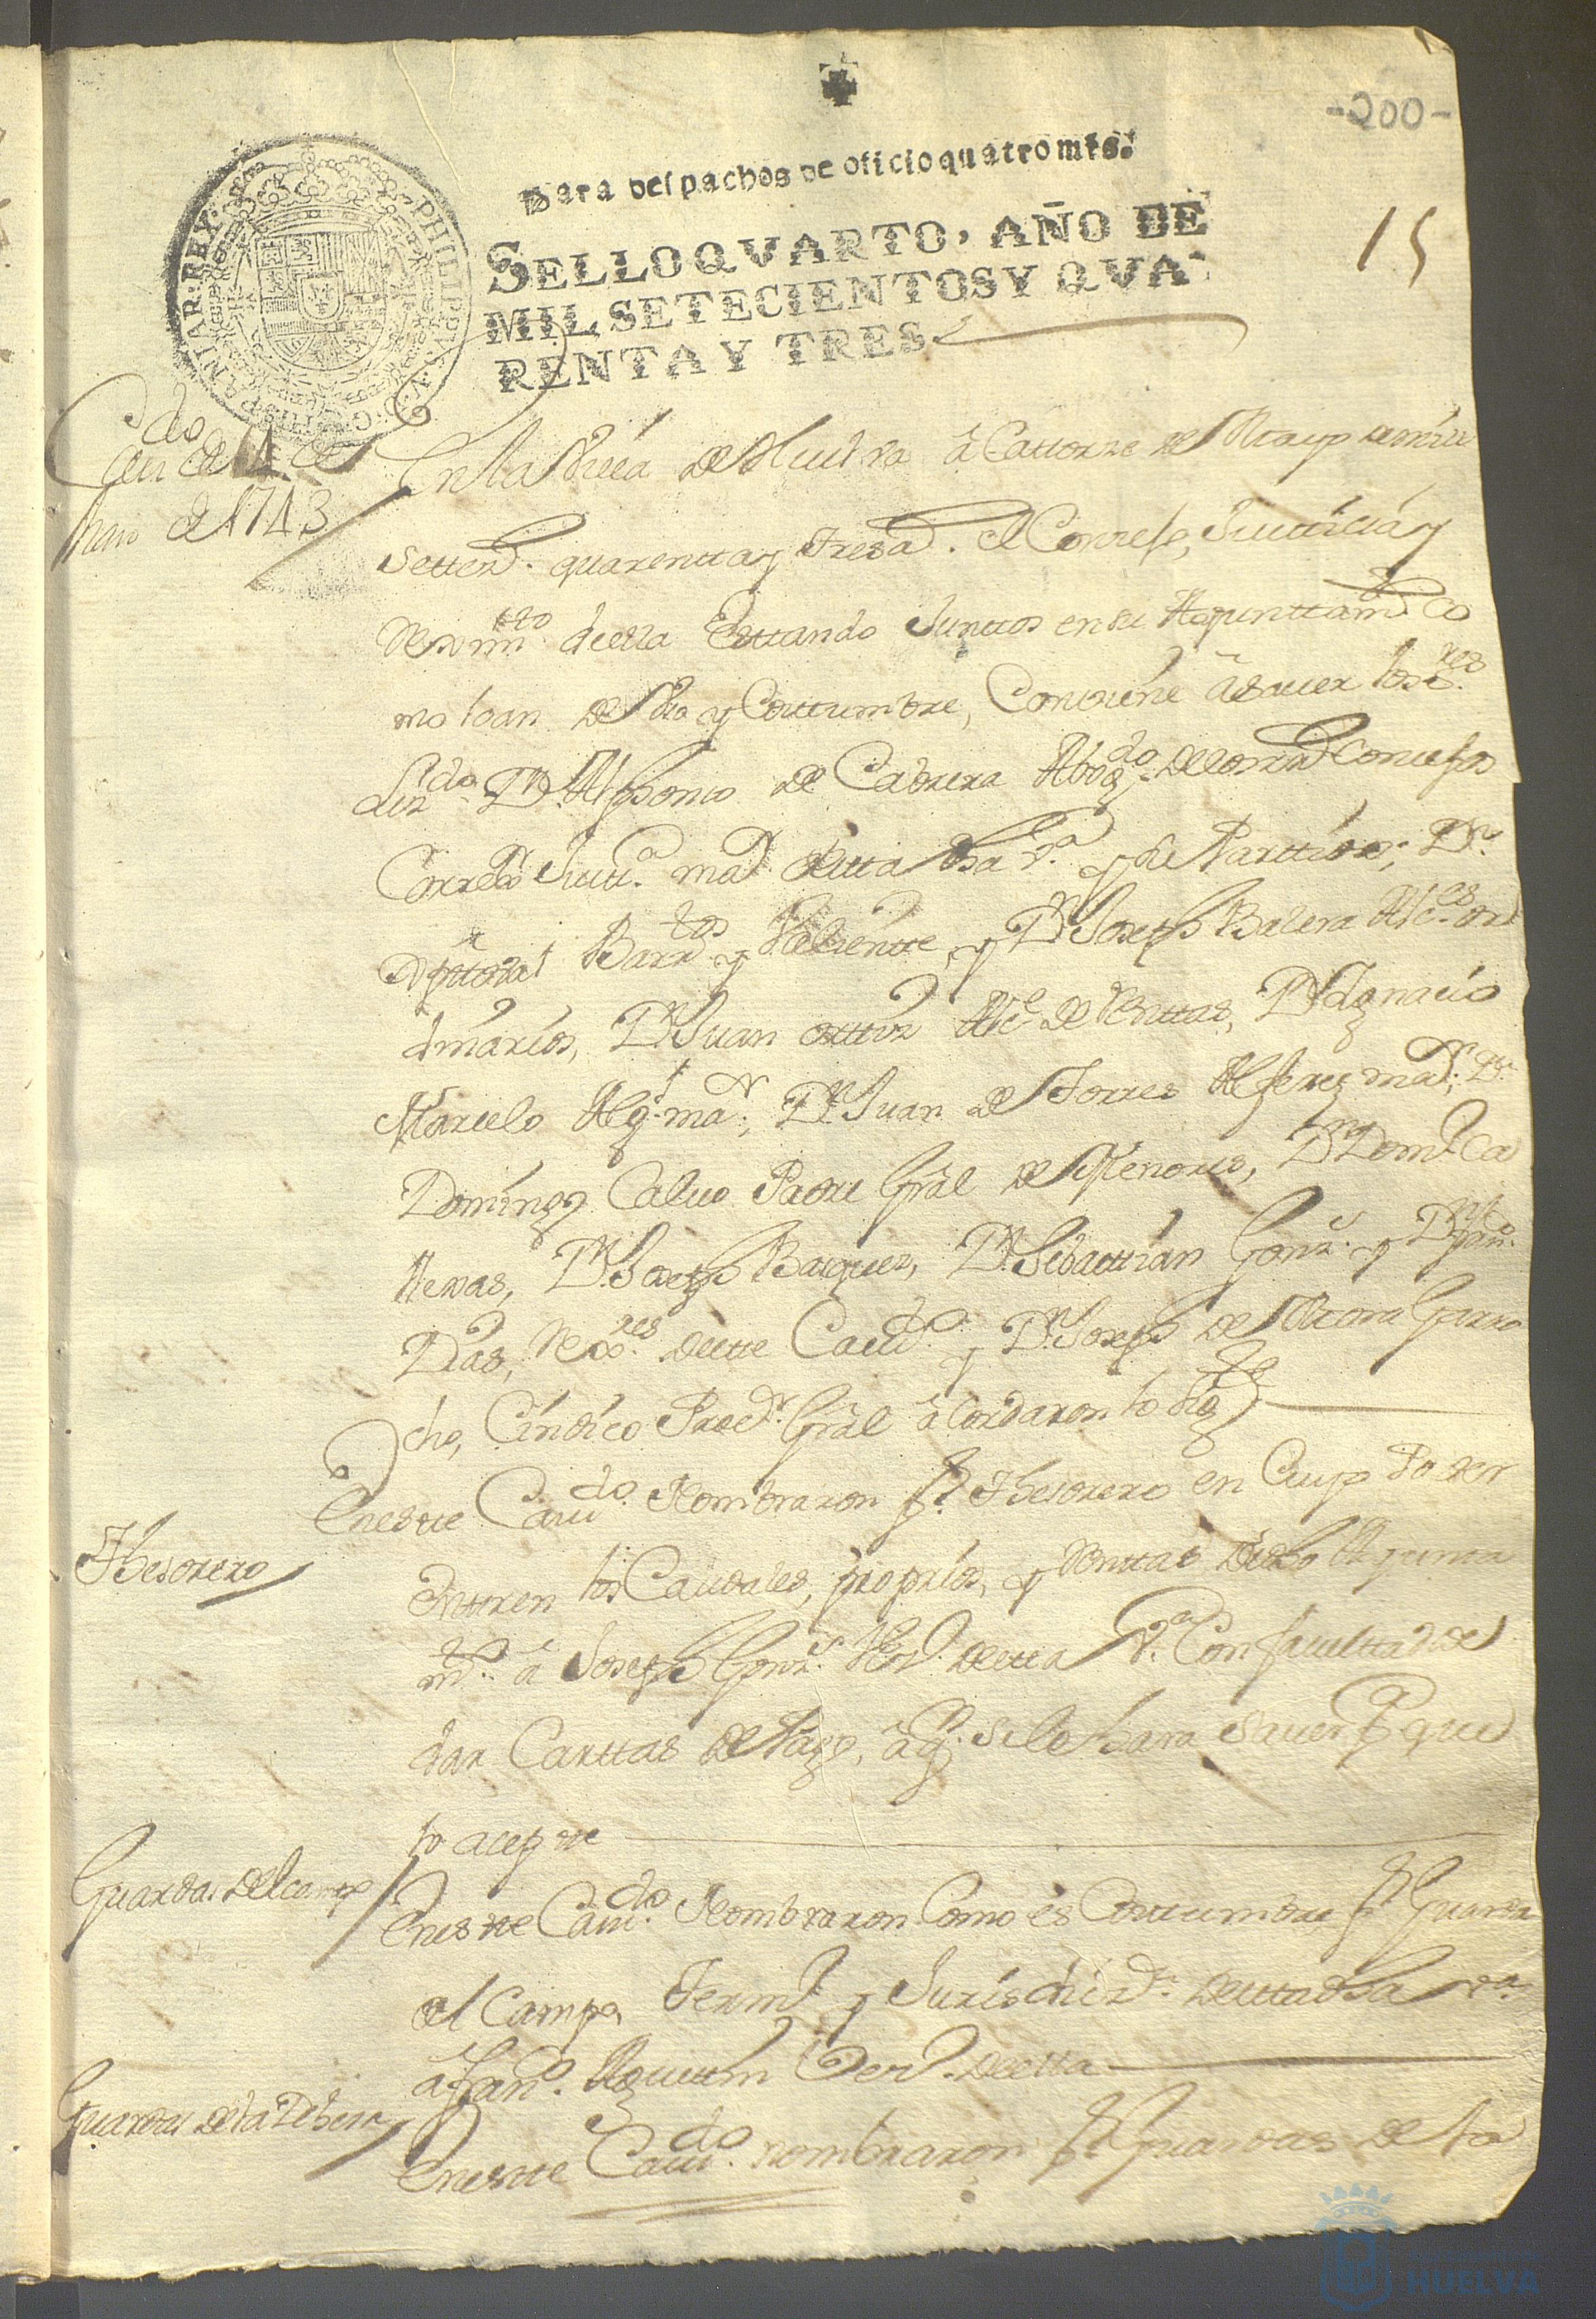 -200-
Para despachos de oficio quatro mrs.
SELLO QVARTO, AÑO DE
MIL SETECIENTOS Y QVA-
RENTA Y TRES
15
PHILIPPVS V D G HISPANIAR REX
Cdo
de 14 de
maio de 1743
En la Villa de Huelva â Cattorze de Mayo de mill
settesos. quarentta y tres as. el Conzejo, Justticia y
Reximto. de ella Esttando Junttos en su Ayunttamto Co
mo lo an de Uso y Costtumbre, Combiene â sauer los sres
Lizdo. Dn. Alphonso de Cabrera Abogdo. de los Rs Consejos
Correxor Justta. mayr de estta dha Va. y su Parttido; Dn.
Barrtos y Valientte, y Dn Joseph Balera Alces. ordi
dinarios, Dn Juan orttiz Alce de Renttas, Dn Ygnacio
Marcelo Algl. mar; Dn Juan de Torres Alferez mar; Dn.
Domingo Calvo Padre Gral de Menores, Dn Domo Ca
nenas, Dn. Joseph Basquez, Dn. Sebasttian Gonz. y Dn
Dias, Rexres. de estte Cauildo. y Dn Joseph de Mora Garro
cho, Cindico Procdr. Gral âcordaron lo sigte
Thesorero
En estte Cauildo. Nombraron pr. Thesorero en Cuyo Poder
Enttren los Caudales, proprios, y Renttas de dicho Ayunta
mto. â Joseph Gonz. Vo. de estta Va. Con facultad de
dar Carttas de Pago, â qn. se le hara sauer pa que
lo acepte
Guardas del campo
En estte Cauildo. Nombraron Como es Costtumbre pr Guarda
el Campo, Termo y Jurisdizn. de estta dha Va.
â Franco. Agusttin de ella
Guardas de la Dehesa
En estte Cauildo. nombraron pr Guardas de la
HUELVA